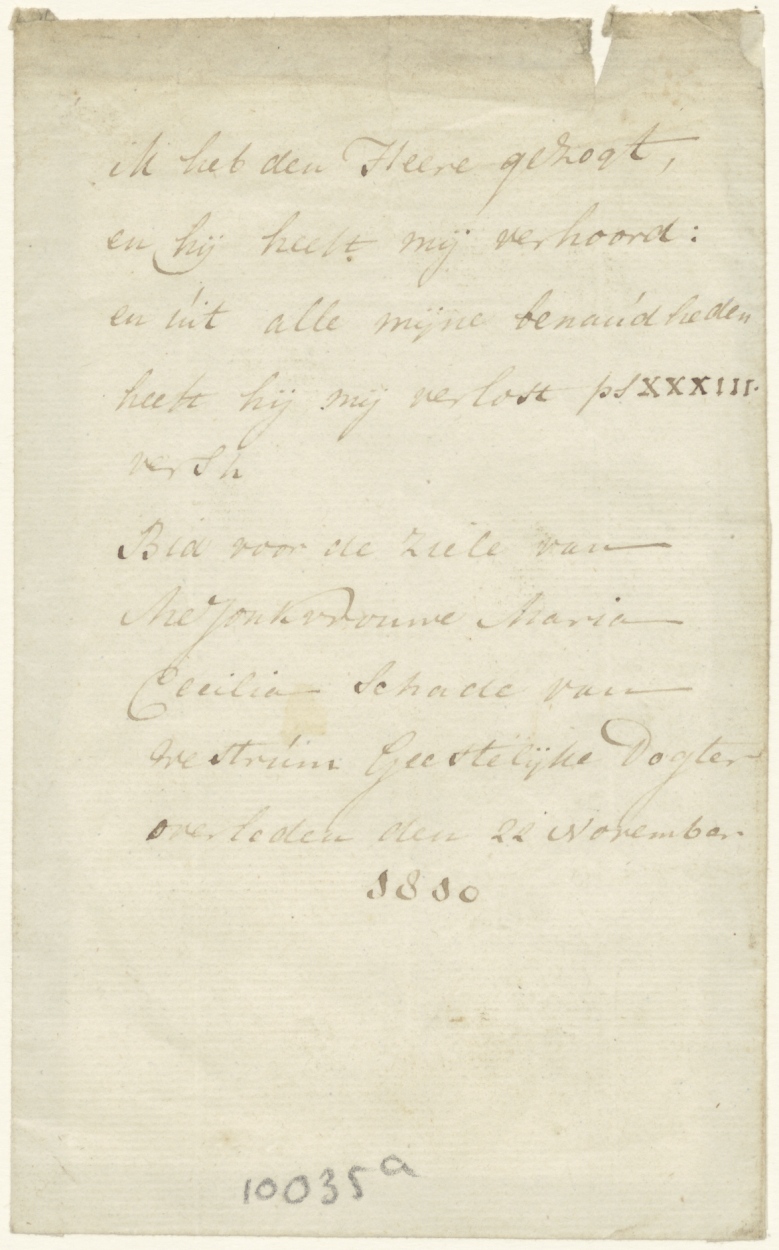 ik heb den Heere gezogt,
en hij heeft mij verhoord:
en úit alle mijne benaúdheden
heeft hij mij verlost ps XXXIII.
vers h
Bid voor de Ziele van
Mejonkvrouwe Maria
Cecilia Schade van
Westrúim Geestelijke Dogter
overleden den 22 November
1810
10035a